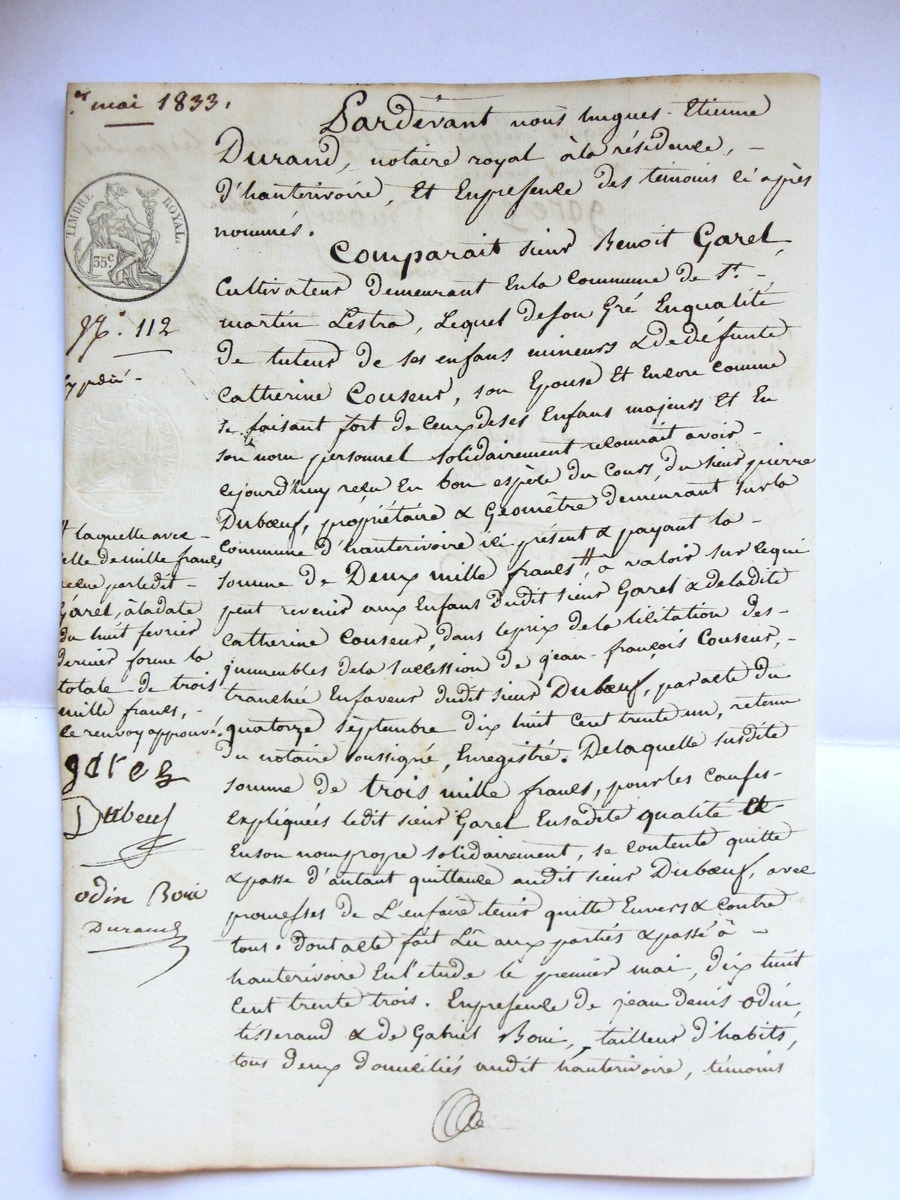 er mai 1833.
TIMBRE ROYAL
35 c
N°. 112
Expédié -
Pardevant nous hugues-Etienne
Durand, notaire royal à la résidence, -
d'hauterivoire, et Enpresence des témoins ci après
nommés.
Comparait sieur Benoit Garel
Cultivateur demeurant Enla Commune de St. -
martin Lestra, Lequel deson Gré Enqualité
de tuteur de ses enfans mineurs & de defunte
Catherine Couseur, son Epouse et Encore comme
se faisant fort de Ceux deses Enfans majeurs et En
son nom personnel solidairement reconnait avoir -
cejourd'huy reçu En bon espèce du Cours du sieur pierre
Dubœuf, propriétaire & Géomêtre demeurant sur la
Commune d'hauterivoire ici présent & payant la -
somme de Deux mille francs # à valoir sur cequi
peut revenir aux Enfans dudit sieur Garel & deladite
Catherine Couseur, dans leprix dela licitation des -
jmmeubles dela succession de jean-françois Couseur, -
tranchée Enfaveur dudit sieur Dubœuf, par acte du
quatorze septembre dix huit cent trente un, retenu
du notaire soussigné, Enregistré. Delaquelle susdite
somme de trois mille francs, pour les causes -
Expliquées ledit sieur Garel Ensadite qualité et
Enson nom propre solidairement, se contente quitte
& passe d'autant quittance audit sieur Dubœuf, avec
promesses de L'enfaire tenir quitte Envers & contre
tous. Dont acte fait Lû aux parties & passé à -
hauterivoire En l'etude le premier mai, dix huit
cent trente trois. Enpresence de jean denis odin
tisserand & de Gabriel Boni, tailleur d'habits,
tous deux domiciliés audit hauterivoire, témoins
# laquelle avec -
celle de mille francs
reçue par ledit -
Garel, à la date
du huit fevrier
dernier forme la
totale de trois
mille francs, -
le renvoy approuvé.
garel
Dubeuf
odin Boni
Durand